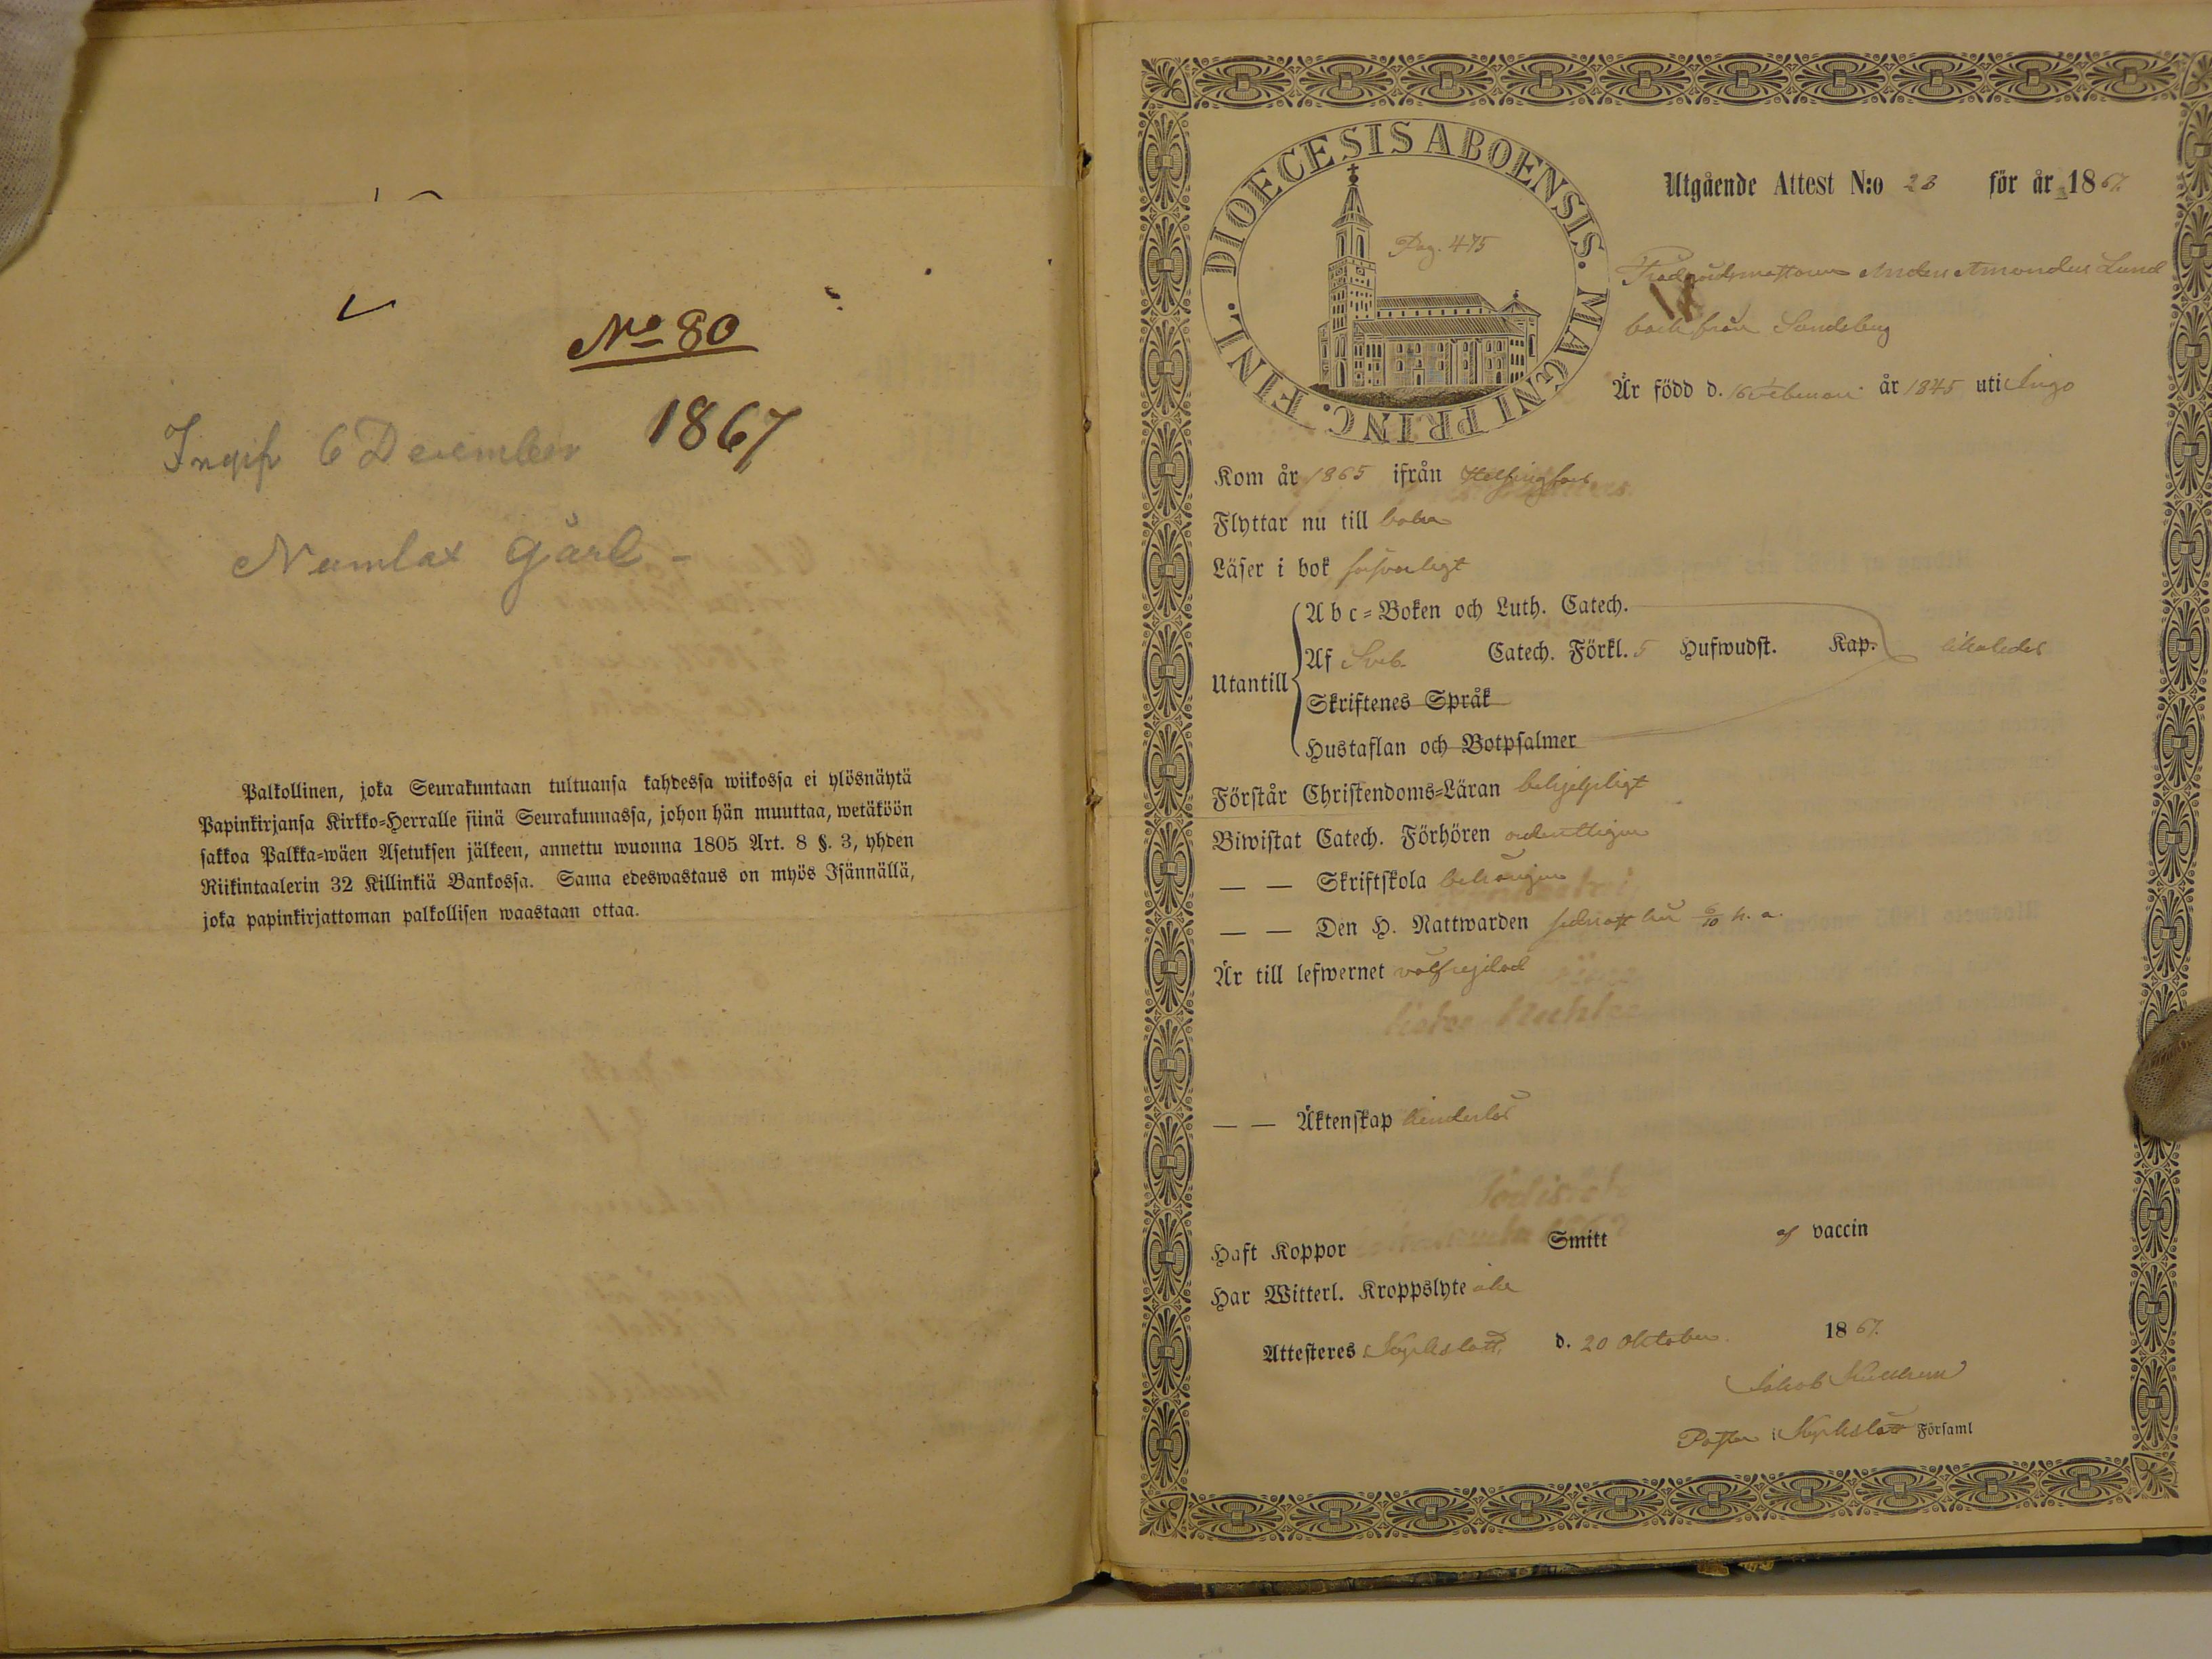 No 80
1867
Ingif 6 December
Numlax gård -
Palkollinen, joka Seurakuntaan tultuansa kahdessa wiikossa ei ylösnäytä
Papinkirjansa Kirkko=Herralle siinä Seurakunnassa, johon hän muuttaa, wetäköön
sakkoa Palkka=wäen Asetuksen jälkeen, annettu wuonna 1805 Art. 8 §. 3, yhden
Riikintaalerin 32 Killinkiä Bankossa. Sama edeswastaus on myös Isännällä,
joka papinkirjattoman palkollisen waastaan ottaa.
DIOECESIS ABOENSIS. MAGNI PRINC. FINL.
Pag. 475
Utgående Attest N:o 28 för år 1867.
Anders Amandus Lund
back från Sundsberg
Är född d. 16 Februari år 1845 uti Ingo
Kom år 1865 ifrån Helsingfors
Flyttar nu till
Läser i bok försvarligt
Utantill
A b c=Boken och Luth. Catech.
Af Sveb. Catech. Förkl. 5 Hufwudst. Kap. likaledes
Skriftenes Språk
Hustaflan och Botpsalmer
Förstår Christendoms=Läran behjelpligt
Biwistat Catech. Förhören ordentligen
— — Skriftskola behörigen
— — Den H. Nattwarden sednast här 6/10 h. a.
Är till lefwernet välfrejdad
— — Äktenskap hinderlös
Haft Koppor Smitt af vaccin
Har Witterl. Kroppslyte icke
Attesteres Kyrkslätt, d. 20 Oktober 1867.
Jakob
Pastor i Kyrkslätt Församl